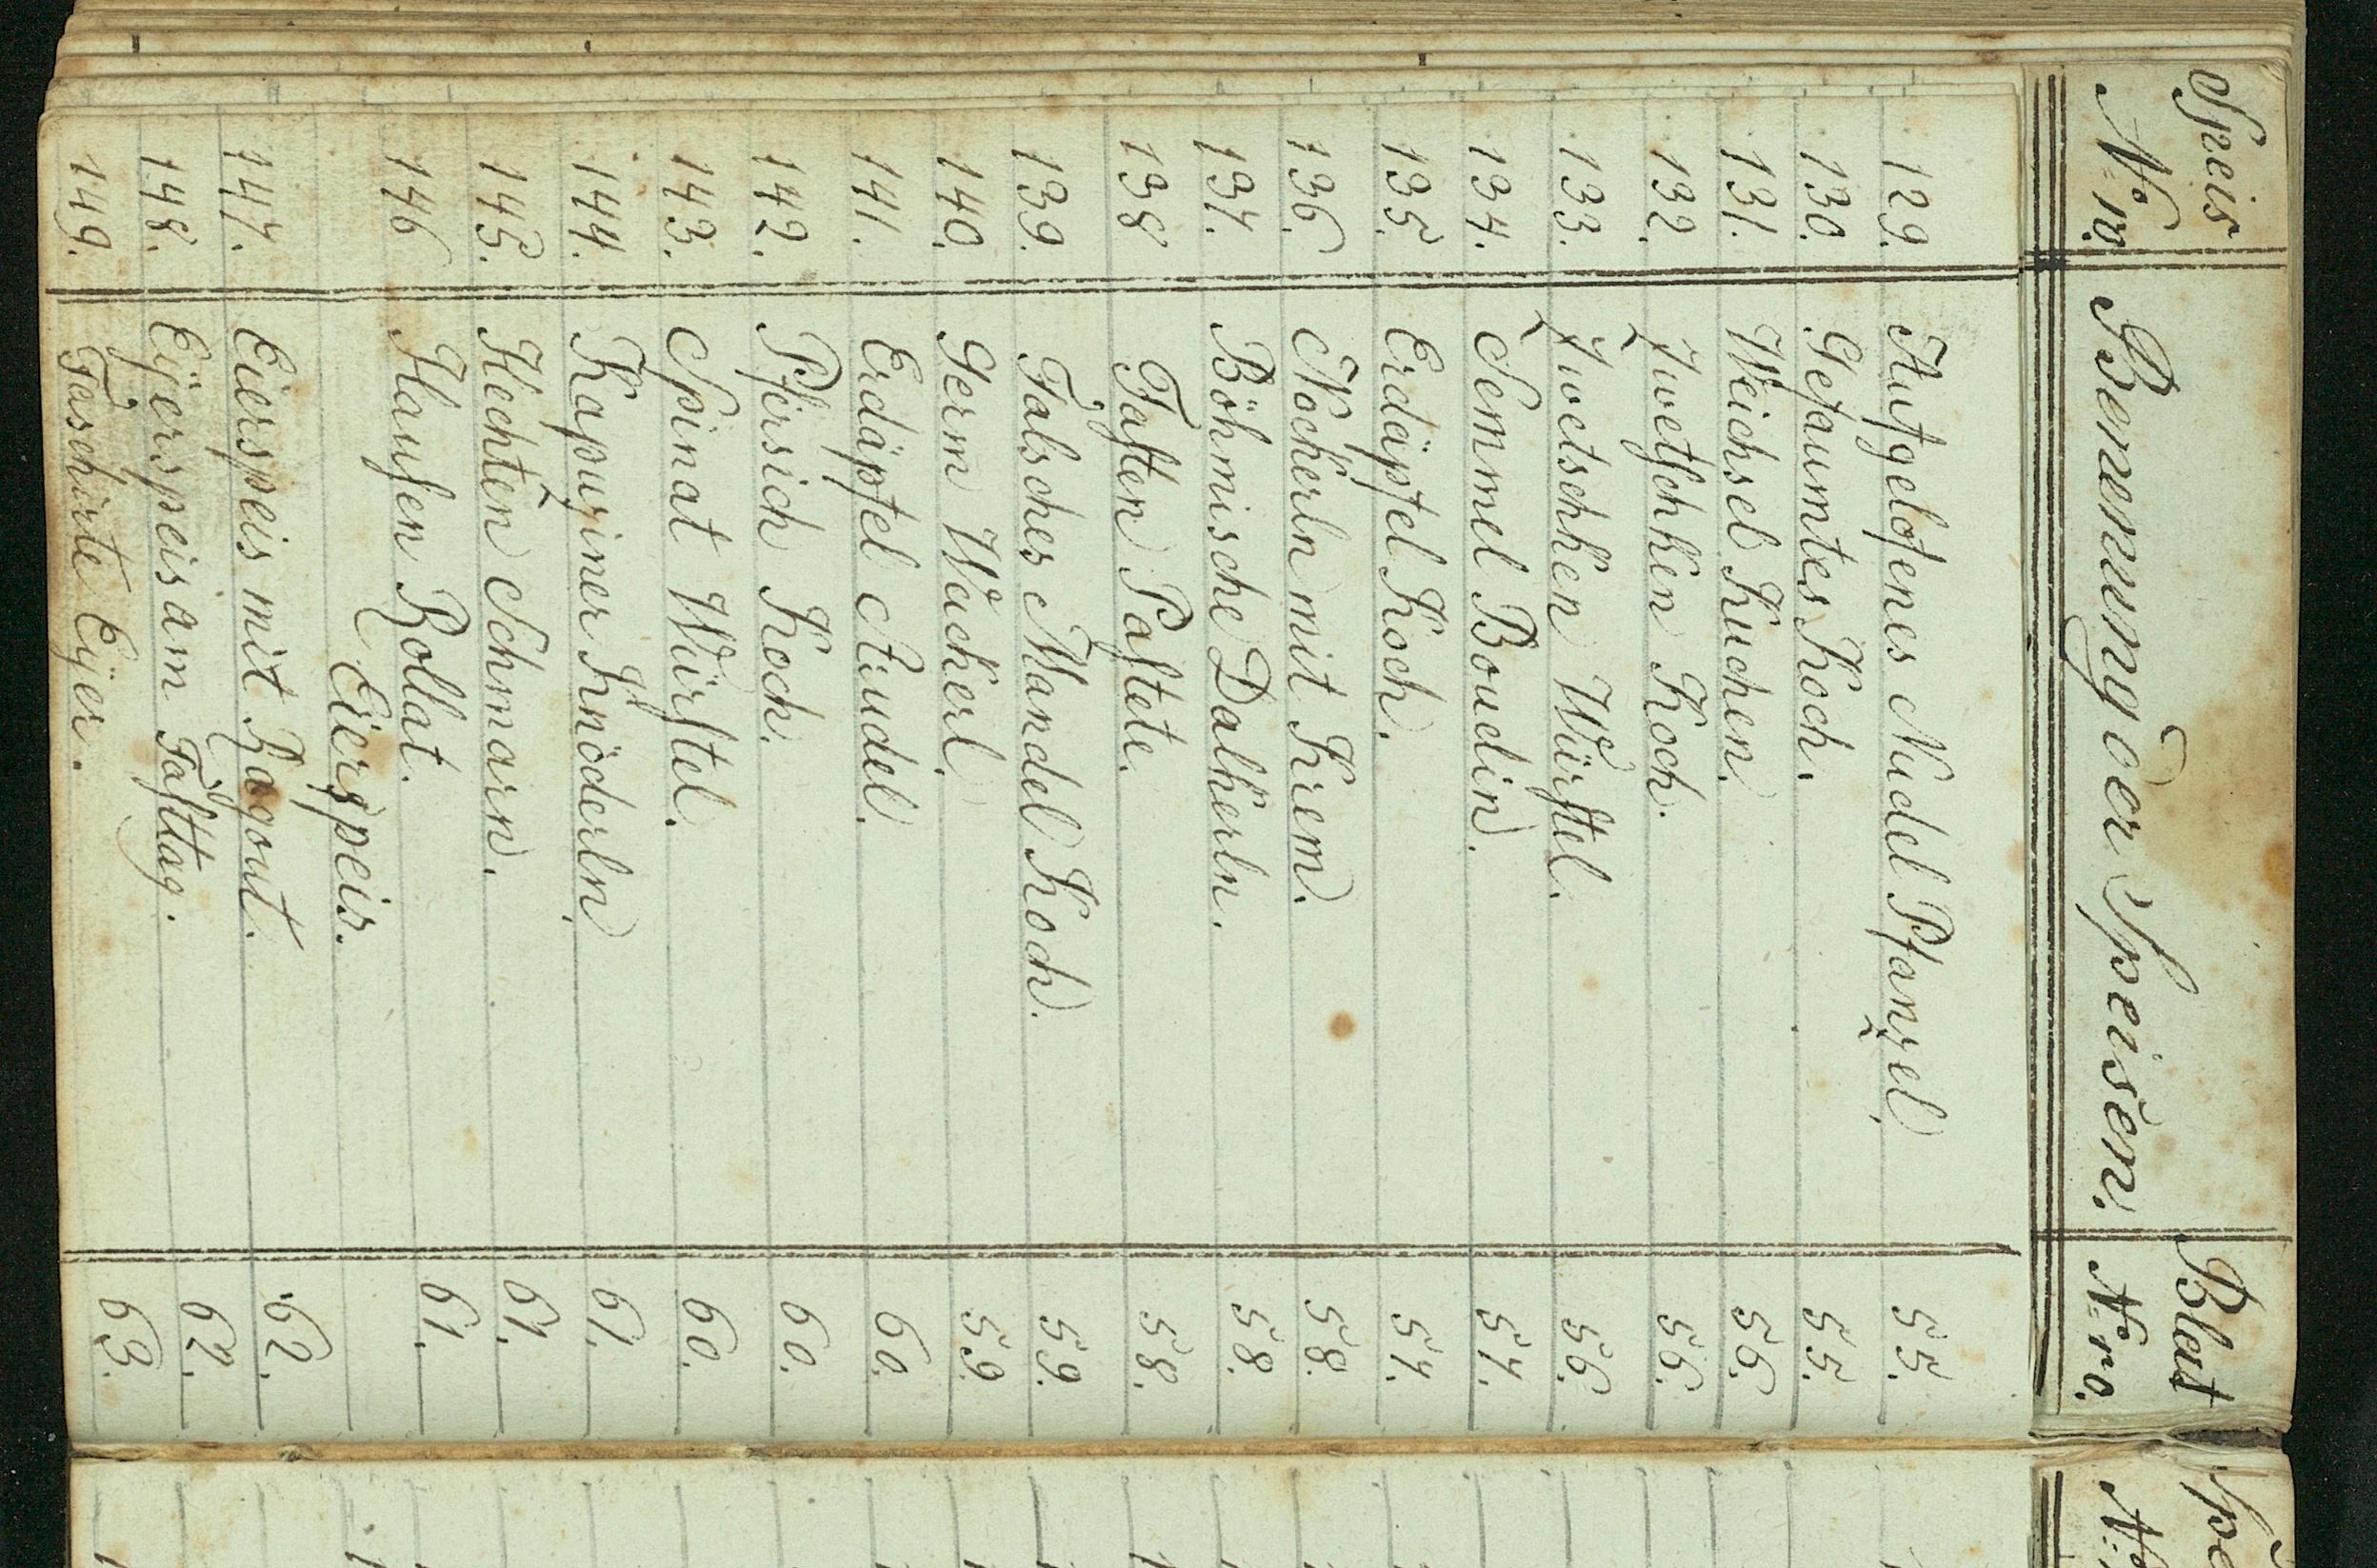 Speis Blatt
Nro. Benennung der Speisen. Nro.
129. Aufgeloffenes Nudel Pfanzel. 55.
130. Gefaumtes Koch. 55.
131. Weichsel Kuchen. 56.
132. Zwetschken Koch. 56.
133. Zwetschken Würstel. 56.
134. Semmel Boudin. 57.
135. Erdäpfel Koch. 57.
136. Nockerln mit Krem. 58.
137. Böhmische Dalkerln. 58.
138 Fasten Pastete. 58.
139. Falsches Mandel Koch. 59.
140. Germ Wackerl. 59.
141. Erdäpfel Strudel. 60.
142. Pfirsich Koch. 60.
143. Spinat Würstel. 60.
144. Kapuziner Knöderln. 61.
145. Hechten Schmarn. 61.
146 Hausen Rollat. 61.
Eierspeis.
147. Eierspeis mit Ragout. 62.
148. Eÿerspeis am Fasttag. 62.
149. Faschirte Eÿer. 63.